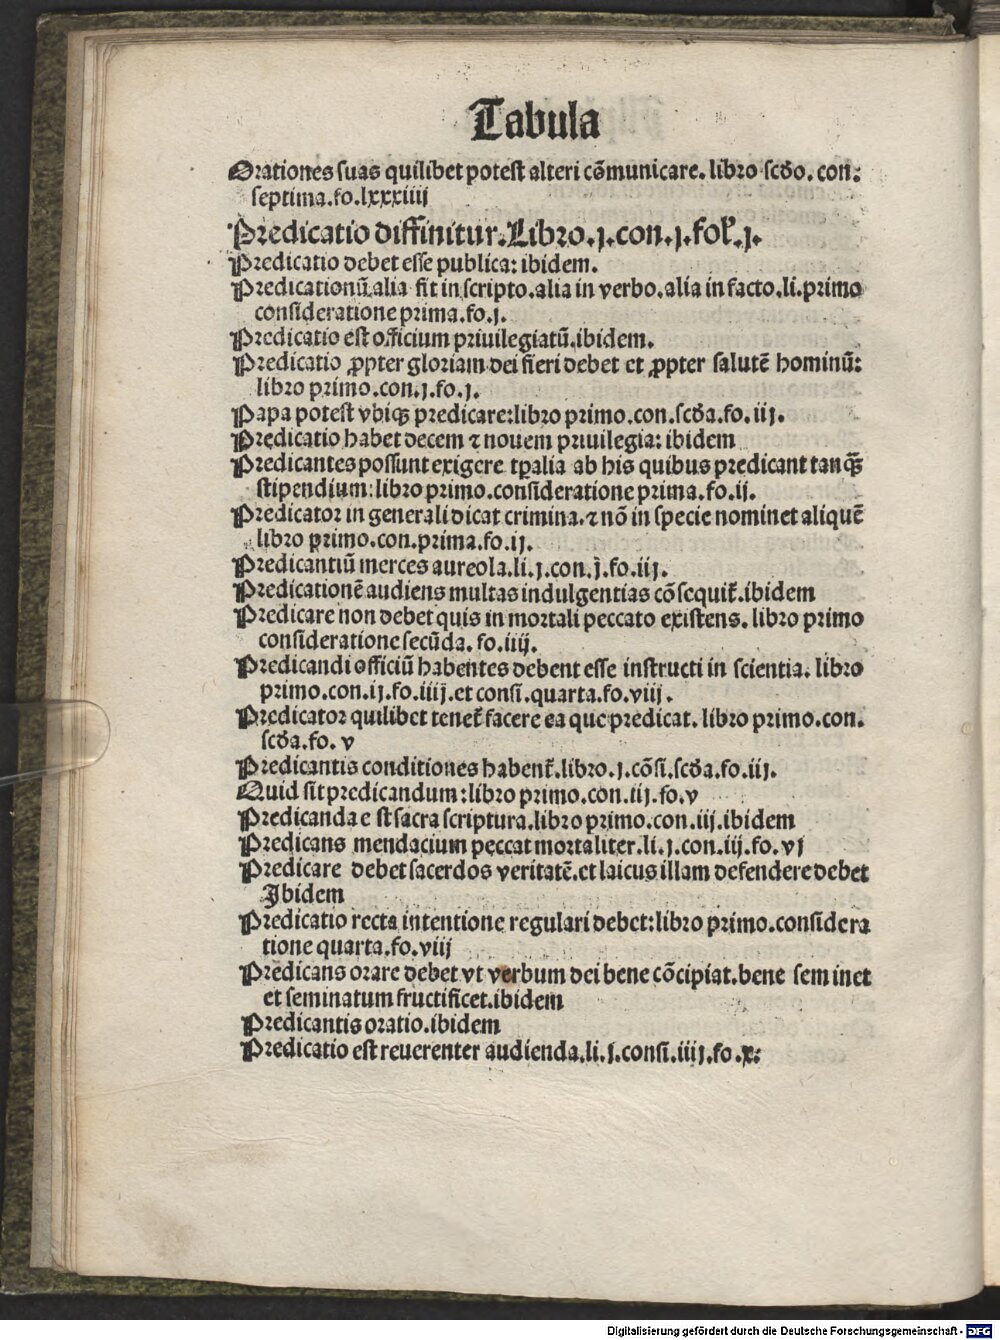 Tabula
Orationes suas quilibet potest alteri cōmunicare. libro scďo. con:
septima.fo.lxxxiiij
Predicatio diffinitur.Libro.j.con.j.fol'.j.
Predicatio debet esse publica: ibidem.
Predicationū.alia fit in scripto.alia in verbo.alia in facto.li.primo
consideratione prima.fo.j.
Predicatio est officium priuilegiatū.ibidem.
Predicatio ꝓpter gloriam dei fieri debet et ꝓpter salutē hominū:
libro primo.con.j.fo.j.
Papa potest vbiqꝫ predicare:libro primo.con.scďa.fo.iij.
Predicatio habet decem ⁊ nouem priuilegia: ibidem
Predicantes possunt exigere tꝑalia ab his quibus predicant tanꝙ̄
stipendium:libro primo.consideratione prima.fo.ij.
Predicator in generali dicat crimina.⁊ nō in specie nominet aliquē
libro primo.con.prima.fo.ij.
Predicantiū merces aureola.li.j.con.j.fo.iij.
Predicationē audiens multas indulgentias cōsequit̄.ibidem
Predicare non debet quis in mortali peccato existens. libro primo
consideratione secūda. fo.iiij.
Predicandi officiū habentes debent esse instructi in scientia. libro
primo.con.ij.fo.iiij.et consi.quarta.fo.viij.
Predicator quilibet tenet̄ facere ea que predicat. libro primo.con.
scďa.fo. v
Predicantis conditiones habent̄.libro.j.cōsi.scďa.fo.iij.
Quid sit predicandum:libro primo.con.iij.fo.v
Predicanda e st sacra scriptura.libro primo.con.iij.ibidem
Predicans mendacium peccat mortaliter.li.j.con.iij.fo.vj
Predicare debet sacerdos veritatē.et laicus illam defendere debet
Ibidem
Predicatio recta intentione regulari debet:libro primo.considera
tione quarta.fo.viij
Predicans orare debet vt verbum dei bene cōcipiat.bene sem inet
et seminatum fructificet.ibidem
Predicantis oratio.ibidem
Predicatio est reuerenter audienda.li.j.consi.iiij.fo.x:
Digitalisierung gefördert durch die Deutsche Forschungsgemeinschaft - DFG